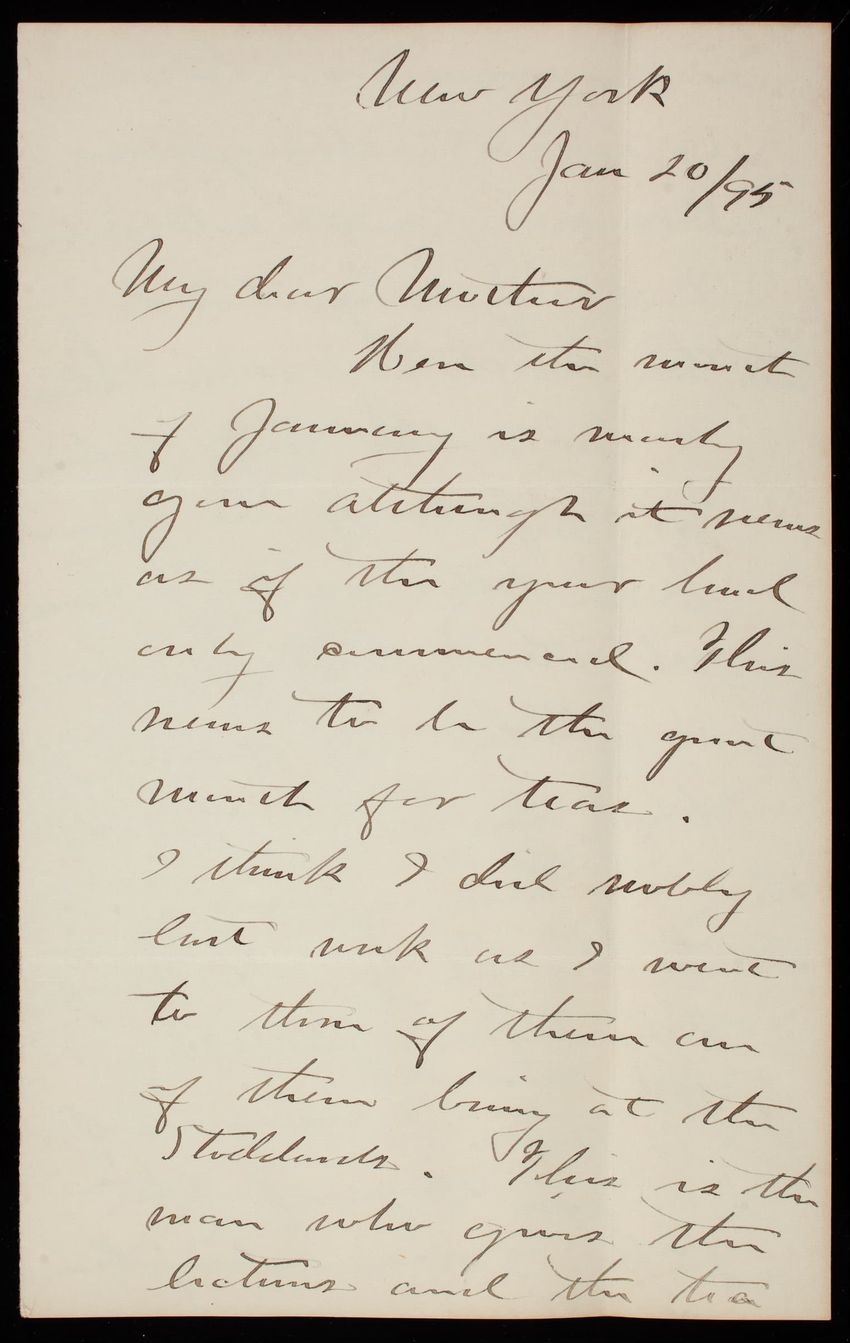 New York
Jan 20/95
My dear Mother
Here the month
of January is nearly
gone although it seems
as if the year had
only commenced. This
seems to be the great
month for teas.
I think I did nobly
last week as I went
to three of them one
of them being at the
Stoddards. This is the
man who gives the
lectures and the tea